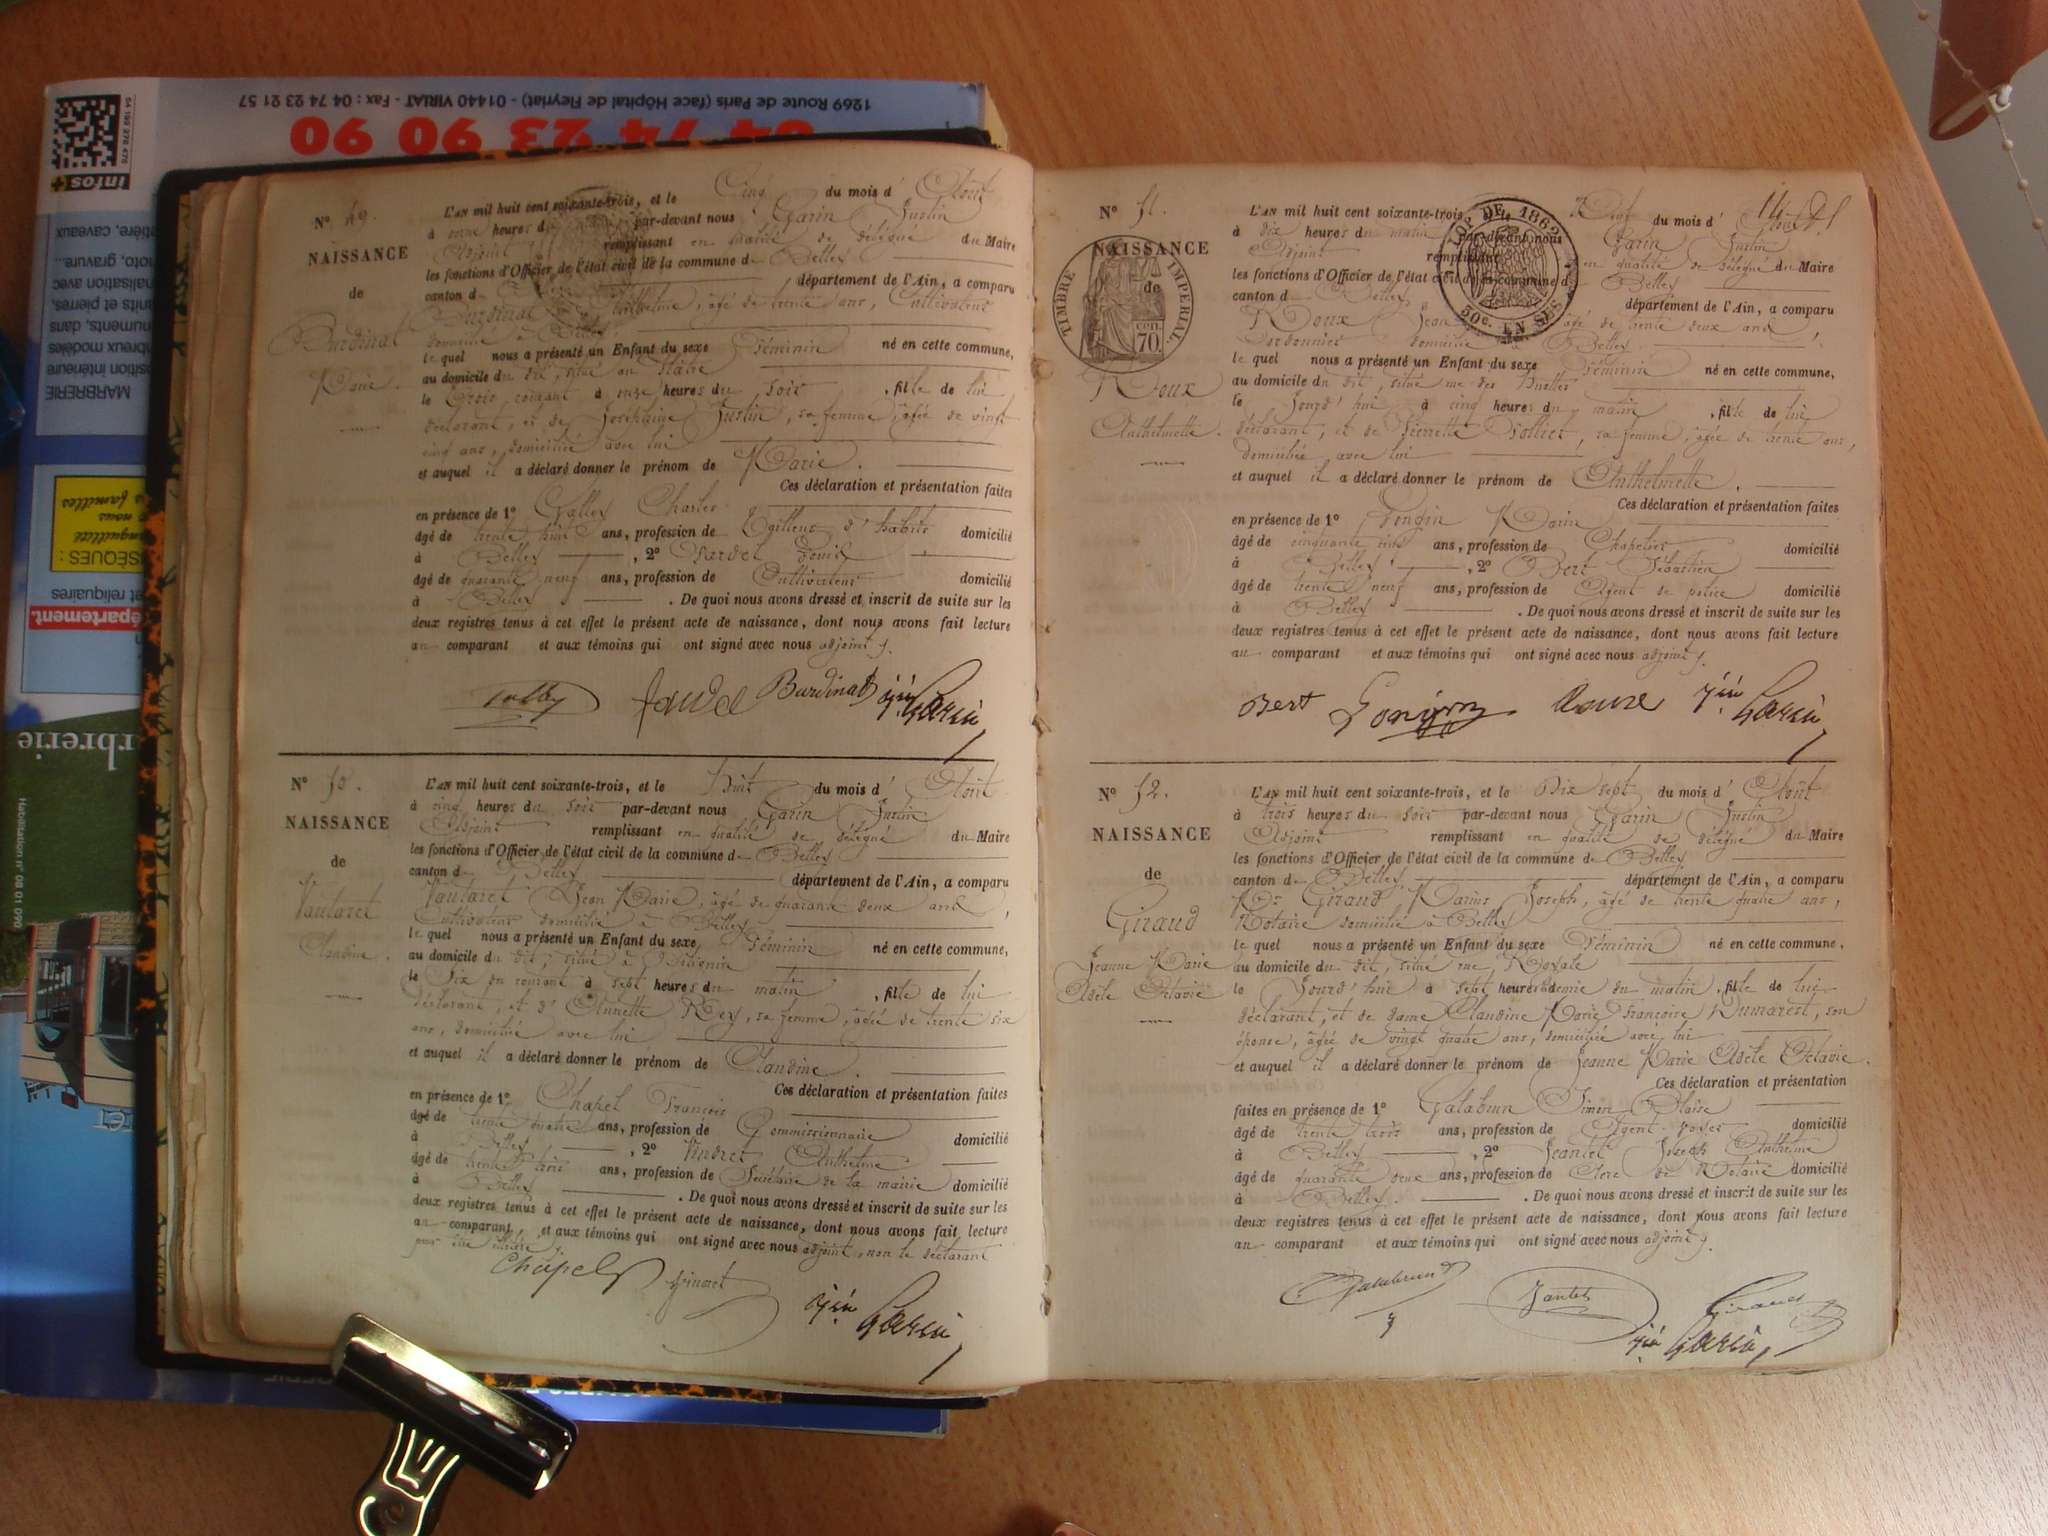 1269 Route de Paris (face Hôpital de Fleyriat) - 01440 VIRIAT - Fax : 04 74 23 21 57
04 74 23 90 90
infos+
MARBRERIE
Habilitation n° 08 01 090
N° 49.
NAISSANCE
de
Burdinat
Marie.
L'AN mil huit cent soixante-trois, et le Cinq du mois d' Août
à onze heures du par-devant nous Garin Justin
Adjoint remplissant en qualité de délégué du Maire
les fonctions d'Officier de l'état civil de la commune de Belley
canton de département de l'Ain, a comparu
Burdinat Anthelme, âgé de trente ans, Cultivateur
domicilié à Belley
le quel nous a présenté un Enfant du sexe Féminin né en cette commune,
au domicile du dit, situé au
le trois courant à onze heures du soir, fille de lui
déclarant, et de Josephine Justin, sa femme, âgée de vingt
cinq ans, domiciliée avec lui
et auquel il a déclaré donner le prénom de Marie.
Ces déclaration et présentation faites
en présence de 1° Galley Charles
âgé de trente huit ans, profession de Tailleur d'habits domicilié
à Belley, 2° Denis
âgé de quarante neuf ans, profession de Cultivateur domicilié
à Belley. De quoi nous avons dressé et inscrit de suite sur les
deux registres tenus à cet effet le présent acte de naissance, dont nous avons fait lecture
au comparant et aux témoins qui ont signé avec nous adjoint.
Burdinat Jin Garin
N° 50.
NAISSANCE
de
Vautaret
Claudine.
L'AN mil huit cent soixante-trois, et le Huit du mois d' Août
à cinq heures du soir par-devant nous Garin Justin
Adjoint remplissant en qualité de délégué du Maire
les fonctions d'Officier de l'état civil de la commune de Belley
canton de Belley département de l'Ain, a comparu
Vautaret Jean Marie, âgé de quarante deux ans,
Cultivateur domicilié à Belley
le quel nous a présenté un Enfant du sexe Féminin né en cette commune,
au domicile du dit, situé à
le Six du courant à sept heures du matin, fille de lui
déclarant, et d'Annette Rey, sa femme, âgée de trente six
ans, domiciliée avec lui
et auquel il a déclaré donner le prénom de Claudine.
Ces déclaration et présentation faites
en présence de 1° Chapel François
âgé de trente quatre ans, profession de Commissionnaire domicilié
à Belley, 2° Vindret Anthelme
âgé de trente trois ans, profession de Secrétaire de la mairie domicilié
à Belley. De quoi nous avons dressé et inscrit de suite sur les
deux registres tenus à cet effet le présent acte de naissance, dont nous avons fait lecture
au comparant, et aux témoins qui ont signé avec nous adjoint, non le déclarant
pour être illétré.
Chapel Vindret Jin Garin
N° 51.
NAISSANCE
de
TIMBRE IMPERIAL
CEN. 70
LOI DE 1862
50c. EN SUS
Roux
Anthelmette.
L'AN mil huit cent soixante-trois, et le Neuf du mois d' Août
à dix heures du matin par-devant nous Garin Justin
Adjoint remplissant en qualité de délégué du Maire
les fonctions d'Officier de l'état civil de la commune de Belley
canton de Belley département de l'Ain, a comparu
Roux Jean âgé de trente deux ans
Cordonnier domicilié à Belley
le quel nous a présenté un Enfant du sexe Féminin né en cette commune,
au domicile du dit, situé rue des
le Jourd'hui à cinq heures du matin, fille de lui
déclarant, et de Pierrette Vollier, sa femme, âgée de trente ans,
domiciliée avec lui
et auquel il a déclaré donner le prénom de Anthelmette.
Ces déclaration et présentation faites
en présence de 1° Marin
âgé de cinquante ans, profession de Chapelier domicilié
à Belley, 2° Bert Sébastien
âgé de trente neuf ans, profession de Agent de police domicilié
à Belley. De quoi nous avons dressé et inscrit de suite sur les
deux registres tenus à cet effet le présent acte de naissance, dont nous avons fait lecture
au comparant et aux témoins qui ont signé avec nous adjoint.
Bert Roux Jin Garin
N° 52.
NAISSANCE
de
Giraud
Jeanne Marie
Adèle Octavie
L'AN mil huit cent soixante-trois, et le Dix sept du mois d' Août
à trois heures du soir par-devant nous Garin Justin
Adjoint remplissant en qualité de délégué du Maire
les fonctions d'Officier de l'état civil de la commune de Belley
canton de Belley département de l'Ain, a comparu
Mr Giraud Marius Joseph, âgé de trente quatre ans,
Notaire domicilié à Belley
le quel nous a présenté un Enfant du sexe Féminin né en cette commune,
au domicile du dit, situé rue Royale
le Jourd'hui à sept heures demie du matin, fille de lui
déclarant, et de dame Claudine Marie Françoise Dumarest, son
épouse, âgée de vingt quatre ans, domiciliée avec lui
et auquel il a déclaré donner le prénom de Jeanne Marie Adèle Octavie.
Ces déclaration et présentation
faites en présence de 1° Galabrun Simon Blaise
âgé de trente trois ans, profession de Agent-voyer domicilié
à Belley, 2° Jeantet Joseph Anthelme
âgé de quarante deux ans, profession de Clerc de Notaire domicilié
à Belley. De quoi nous avons dressé et inscrit de suite sur les
deux registres tenus à cet effet le présent acte de naissance, dont nous avons fait lecture
au comparant et aux témoins qui ont signé avec nous adjoint.
Galabrun Jantet Giraud
Jin Garin